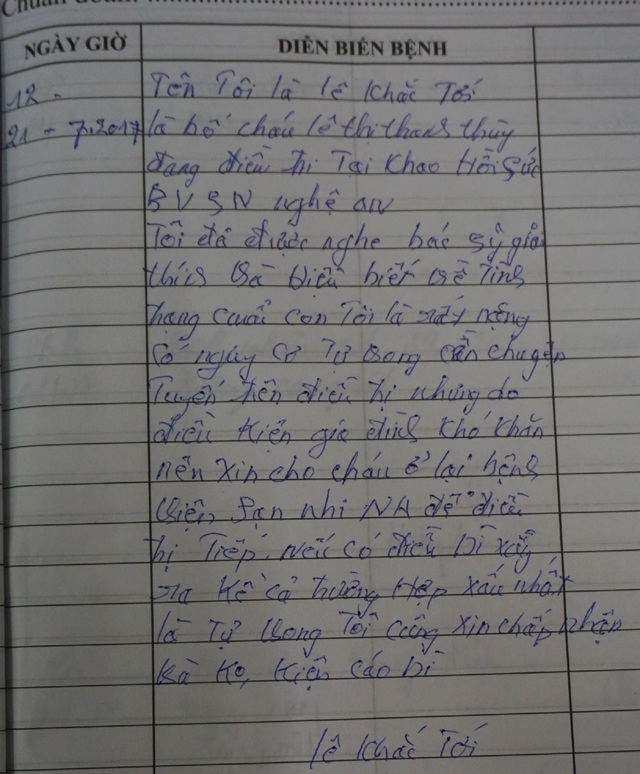 Chuẩn đoán
NGÀY GIỜ
DIỄN BIẾN BỆNH
12 -
21 - 7.2017
Tên Tôi là lê Khắc Tới
là bố cháu lê thị thanh thùy
đang điều trị Tại Khao Hồi Sức
BVSN nghệ an
Tôi đã được nghe bác sỹ giả
thích và hiểu biết về Tình
trạng cuả con Tôi là rất nặng
có nguy cơ Tử vong cần chuyển
Tuyến trên điều trị nhưng do
điều Kiện gia đình Khó Khăn
nên xin cho cháu ở lại bệnh
viện sản nhi NA để điều
trị Tiếp. nếu có điều Dì xẩy
ra Kể cả trường Hợp xấu nhất
là Tử vong Tôi cũng xin chấp nhận
và Ko, Kiện cáo Dì
lê Khắc Tới